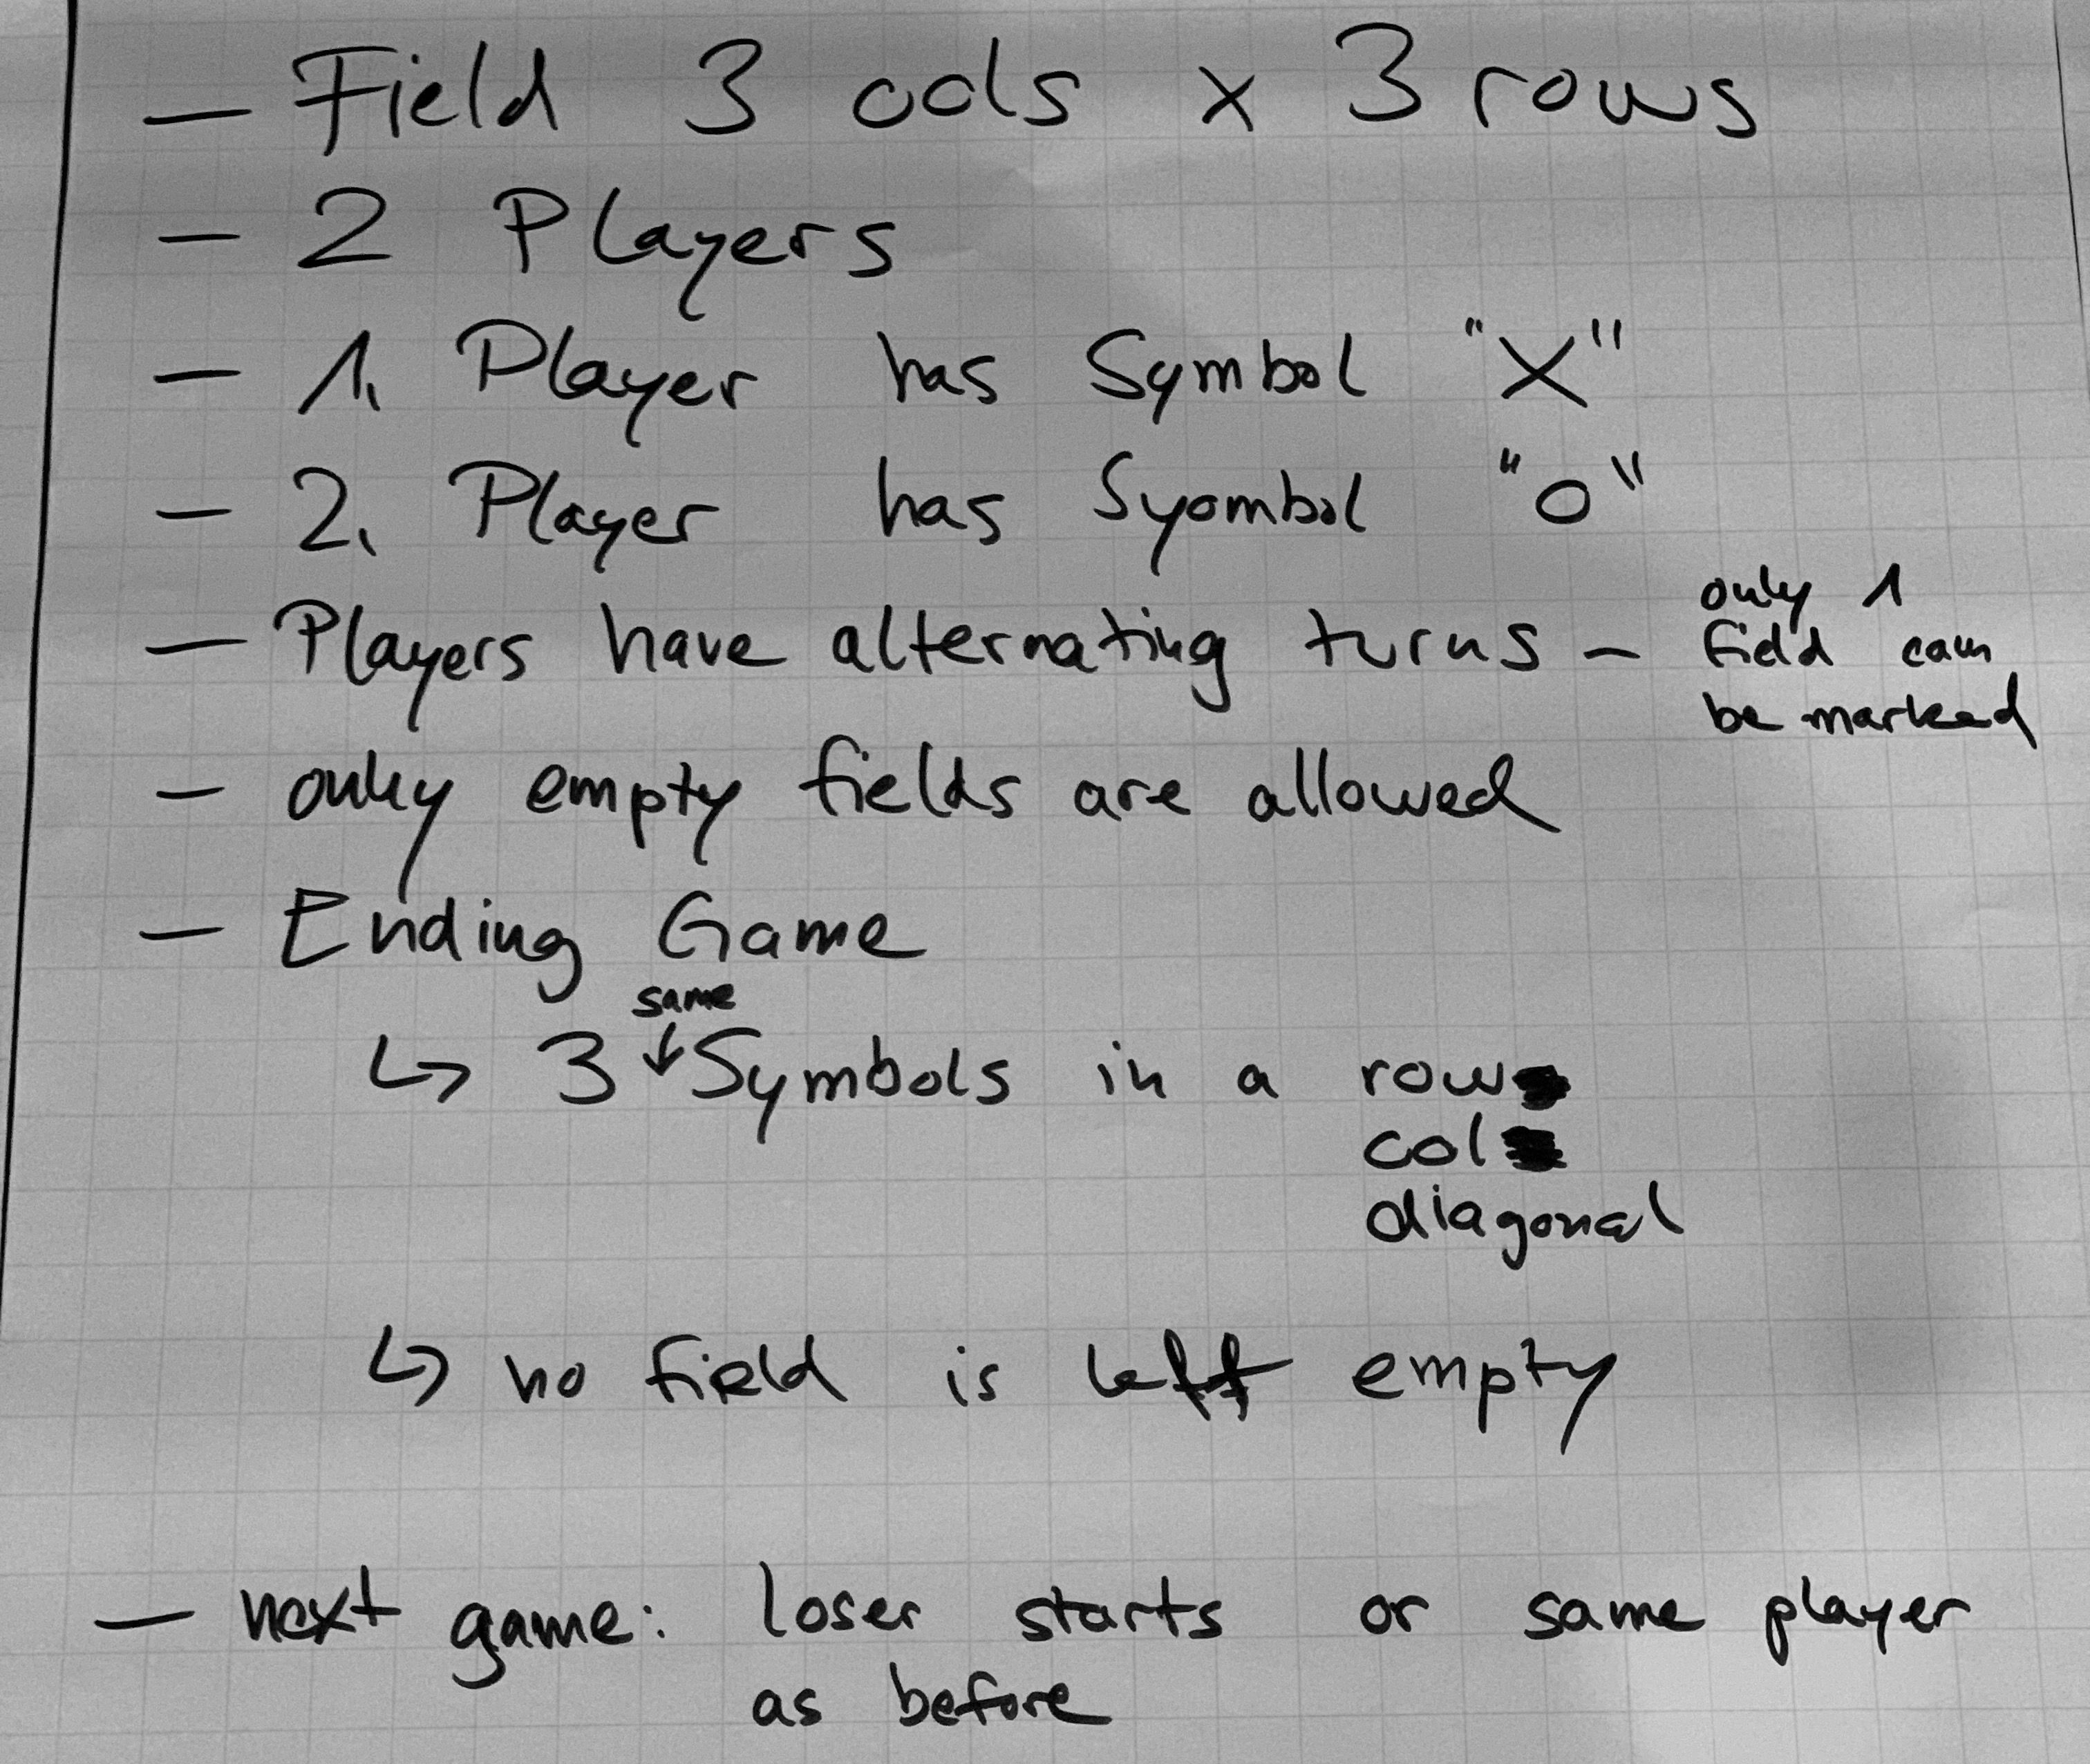 – Field 3 cols x 3 rows
– 2 Players
– 1. Player has Symbol "X"
– 2. Player has Syombol "O"
– Players have alternating turns – only 1
field can
be marked
– only empty fields are allowed
– Ending Game
same
↳ 3 ↓ Symbols in a row
col
diagonal
↳ no field is left empty
– next game: loser starts or same player
as before